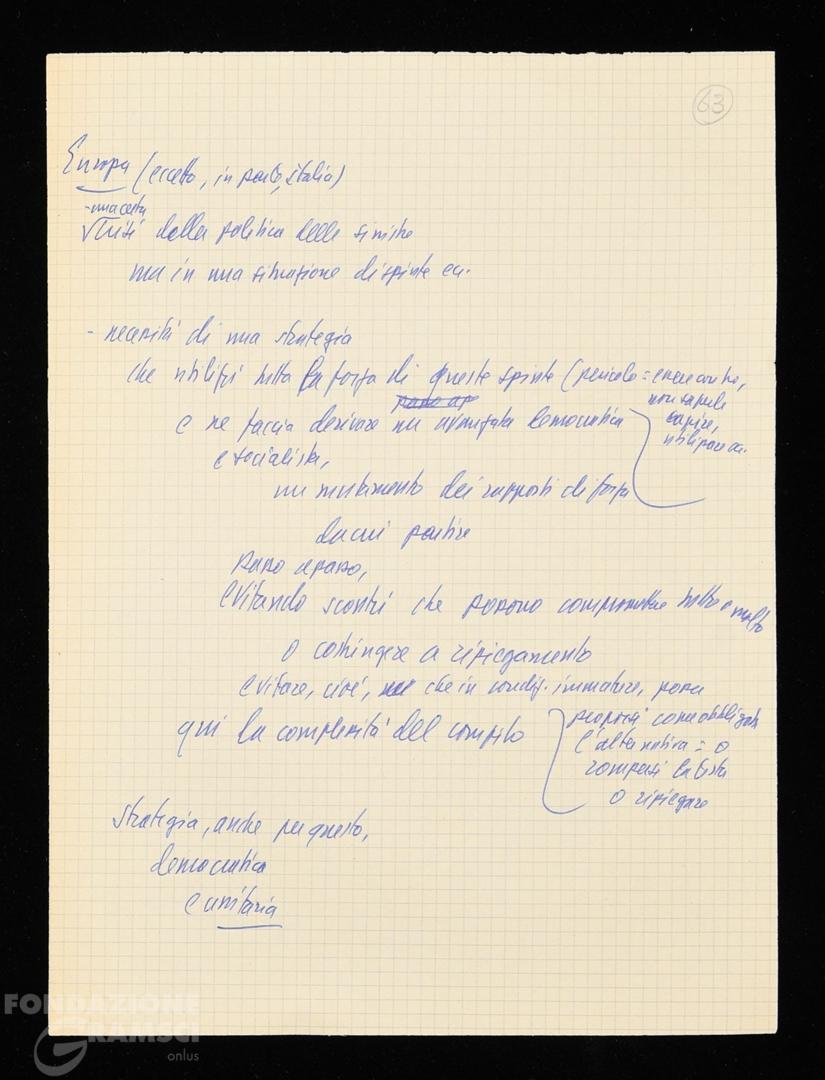 63
Europa (eccetto, in parte, Italia)
- una certa
crisi della politica delle sinistre
ma in una situazione di spinte ecc.
- necessità di una strategia
che utilizzi tutta la forza di queste spinte (pericolo =
non saperle
capire,
utilizzare ecc.
e ne faccia derivare un'avanzata democratica
e socialista,
un mutamento dei rapporti di forza
da cui partire
passo a passo,
evitando scontri che possono compromettere tutto o molto
o costringere a ripiegamento
evitare, cioè, che in condiz. immature, possa
proporsi come obbligata
l'alternativa = o
rompersi la testa
o ripiegare
qui la complessità del compito
strategia, anche per questo,
democratica
e unitaria
FONDAZIONE
GRAMSCI
onlus